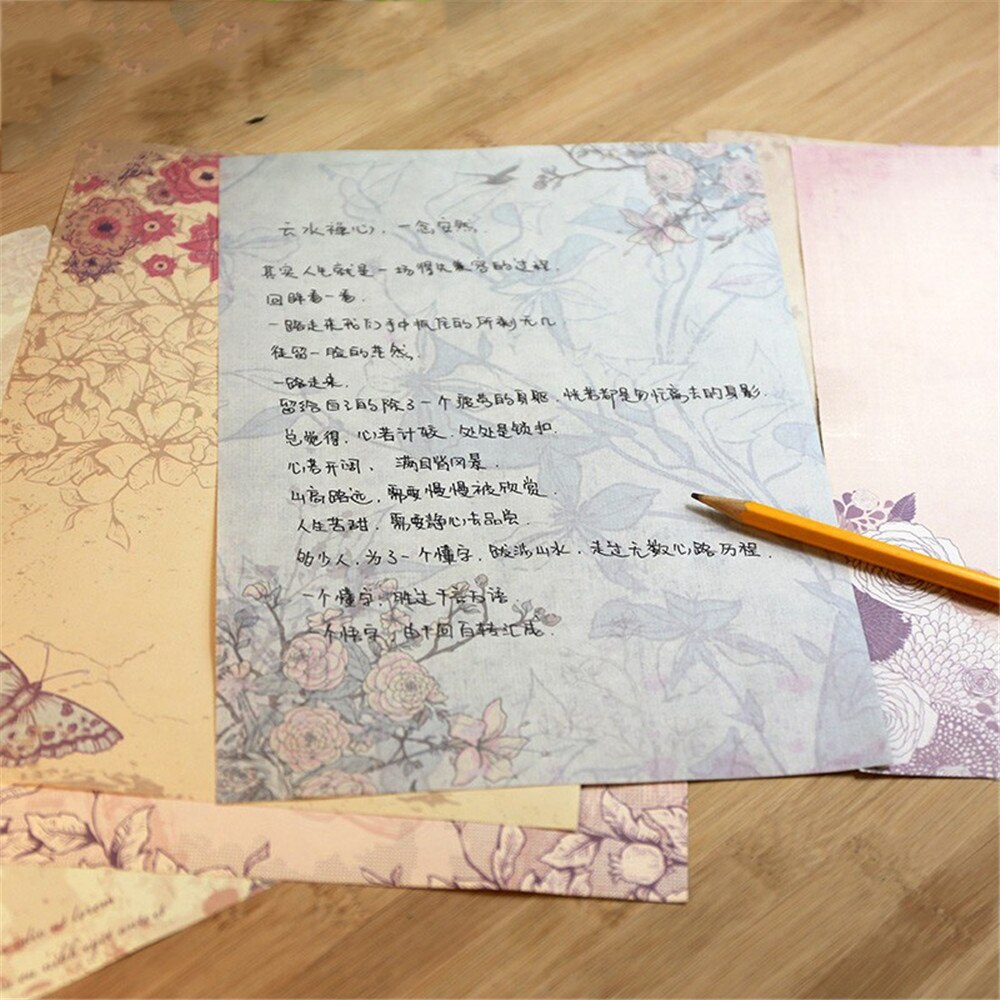 云水禅心，一念安然。
其实人生就是一场得失兼容的过程.
回眸看一看.
一路走来我们手中抓住的所剩无几
徒留一脸的茫然。
一路走来.
留给自己的除了一个疲惫的身躯，恍若都是匆忙离去的身影.
总觉得，心若计较.处处是锁扣.
心若开阔，满目皆风景.
山高路远，需要慢慢被欣赏.
人生苦甜，需要静心去品尝.
多少人，为了一个懂字，跋涉山水，走过无数心路历程.
一个懂字，胜过千言万语.
一个快字，由千回百转汇成.